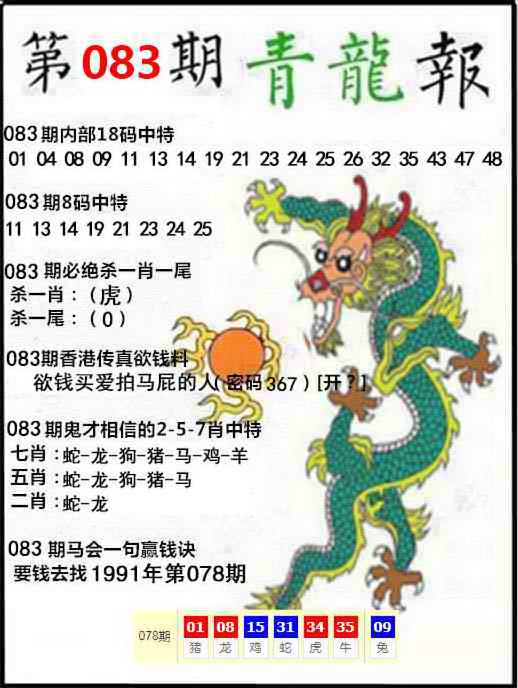 第083期青龍報
083期内部18码中特
01 04 08 09 11 13 14 19 21 23 24 25 26 32 35 43 47 48
083期8码中特
11 13 14 19 21 23 24 25
083 期必绝杀一肖一尾
杀一肖：（虎）
杀一尾：（0）
083期香港传真欲钱料
欲钱买爱拍马屁的人（密码367）[开？]
083期鬼才相信的2-5-7肖中特
七肖：蛇-龙-狗-猪-马-鸡-羊
五肖：蛇-龙-狗-猪-马
二肖：蛇-龙
083 期马会一句赢钱诀
要钱去找1991年第078期
078期 01 08 15 31 34 35 09
猪 龙 鸡 蛇 虎 牛 兔